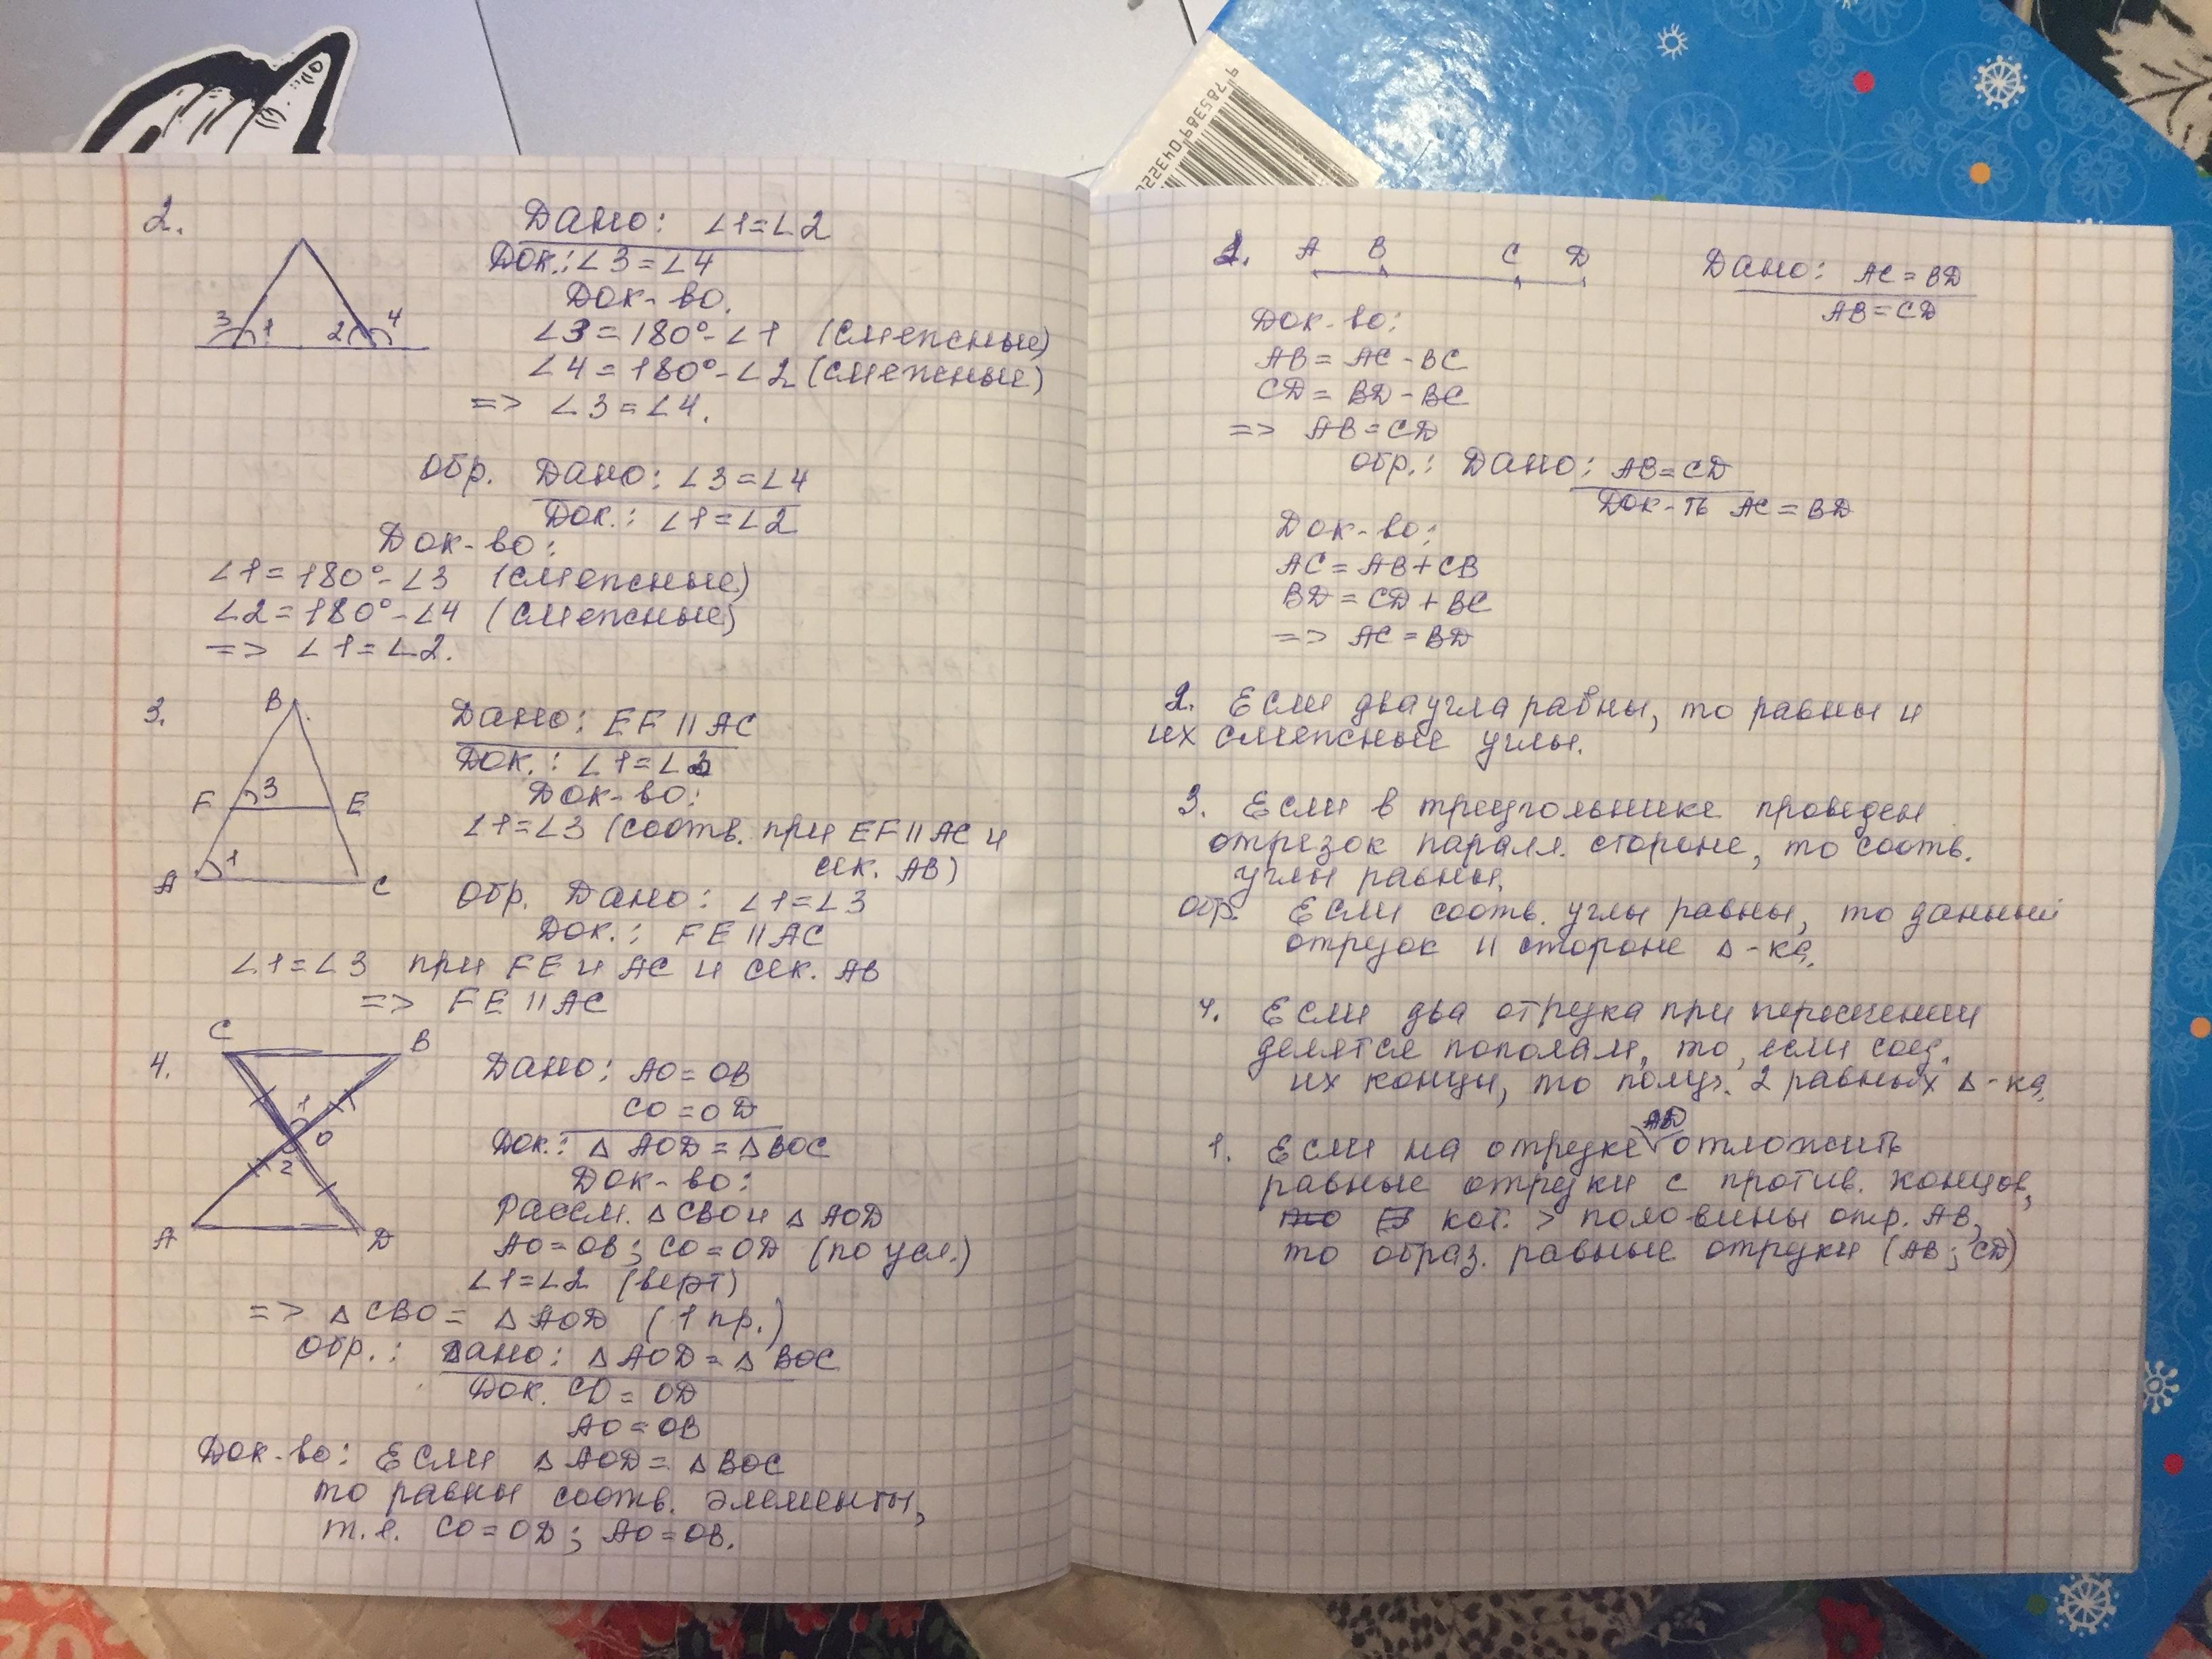 2.
3 1 2 4
Дано: ∠1=∠2
Док.: ∠3=∠4
Док-во.
∠3=180°-∠1 (смежные)
∠4=180°-∠2 (смежные)
=> ∠3=∠4.
Обр. Дано: ∠3=∠4
Док.: ∠1=∠2
Док-во:
∠1=180°-∠3 (смежные)
∠2=180°-∠4 (смежные)
=> ∠1=∠2.
3.
B
F 3 E
A 1 C
Дано: EF || AC
Док.: ∠1=∠3
Док-во:
∠1=∠3 (соотв. при EF || AC и
сек. AB)
Обр. Дано: ∠1=∠3
Док.: FE || AC
∠1=∠3 при FE и AC и сек. AB
=> FE || AC
4.
C B
1
O
2
A D
Дано: AO=OB
CO=OD
Док.: △ AOD=△BOC
Док-во:
Рассм. △CBO и △ AOD
AO=OB; CO=OD (по усл.)
∠1=∠2 (верт)
=> △ CBO = △AOD (1 пр.)
Обр.: Дано: △AOD=△ BOC
Док. CO=OD
AO=OB
Док-во: Если △ AOD= △BOC
то равны соотв. элементы,
т.е. CO=OD; AO=OB.
1. A B C D
Дано: AC=BD
AB=CD
Док-во:
AB= AC-BC
CD= BD-BC
=> AB=CD
обр.: Дано: AB=CD
Док-ть AC=BD
Док-во:
AC=AB+CB
BD=CD+BC
=> AC=BD
2. Если два угла равны, то равны и
их смежные углы.
3. Если в треугольнике проведен
отрезок паралл. стороне, то соотв.
углы равны.
Обр. Если соотв. углы равны, то данный
отрезок || стороне △-ка.
4. Если два отрезка при пересечении
делятся пополам, то, если соед.
их концы, то получ. 2 равных △-ка.
1. Если на отрезке AD отложить
равные отрезки с против. концов,
то кот. > половины отр. AB,
то образ. равные отрезки (AB; CD)